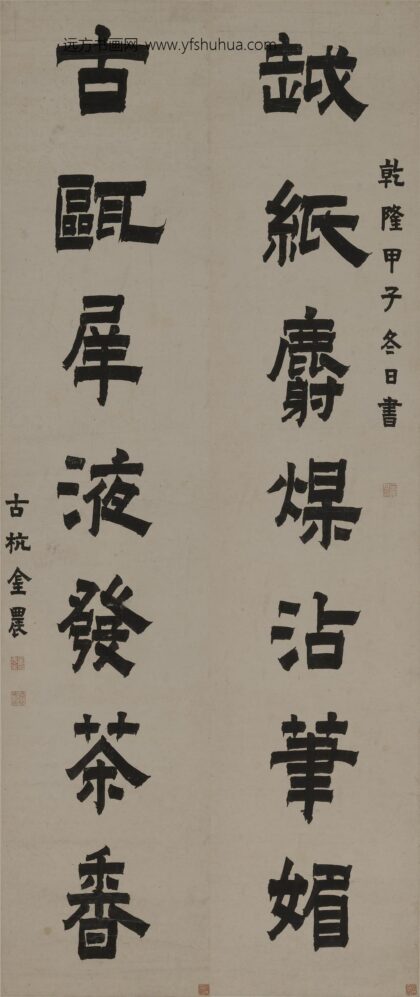 远方书画网 www.yfshuhua.com
乾隆甲子冬日書
越紙麝煤沾筆媚
古甌犀液發茶香
古杭金農